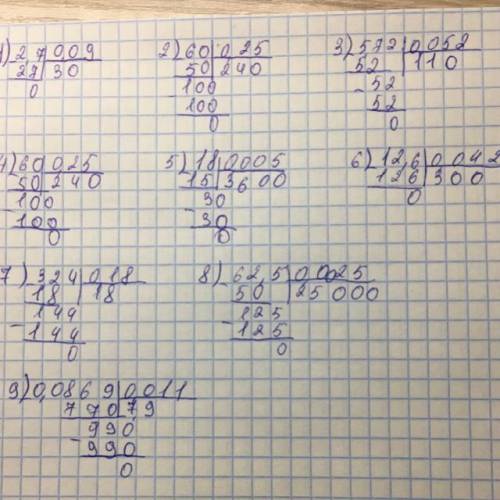 1) 2,7 0,09
27 30
0
2) 60 0,25
50 240
100
100
0
3) 5,72 0,052
52 110
52
52
0
4) 60 0,25
50 240
100
100
0
5) 18 0,005
15 3600
30
30
0
6) 12,6 0,042
126 300
0
7) 3,24 0,18
18 18
144
144
0
8) 62,5 0,0025
50 25000
125
125
0
9) 0,0869 0,011
770 7,9
990
990
0